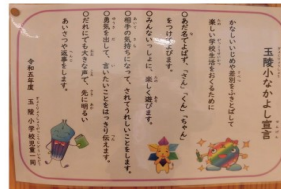 玉陵小なかよし宣言
かなしいいじめや差別をふきとばして
楽しい学校生活をおくるために
〇あだ名でよばず、「さん」「くん」「ちゃん」
をつけてよびます。
〇みんないっしょに、楽しく遊びます。
〇相手の気持ちになって、されてうれしいことをします。
〇勇気を出して、言いたいことをはっきり伝えます。
〇だれにでも大きな声で、先に明るい
あいさつや返事をします。
令和五年度 玉陵小学校児童一同